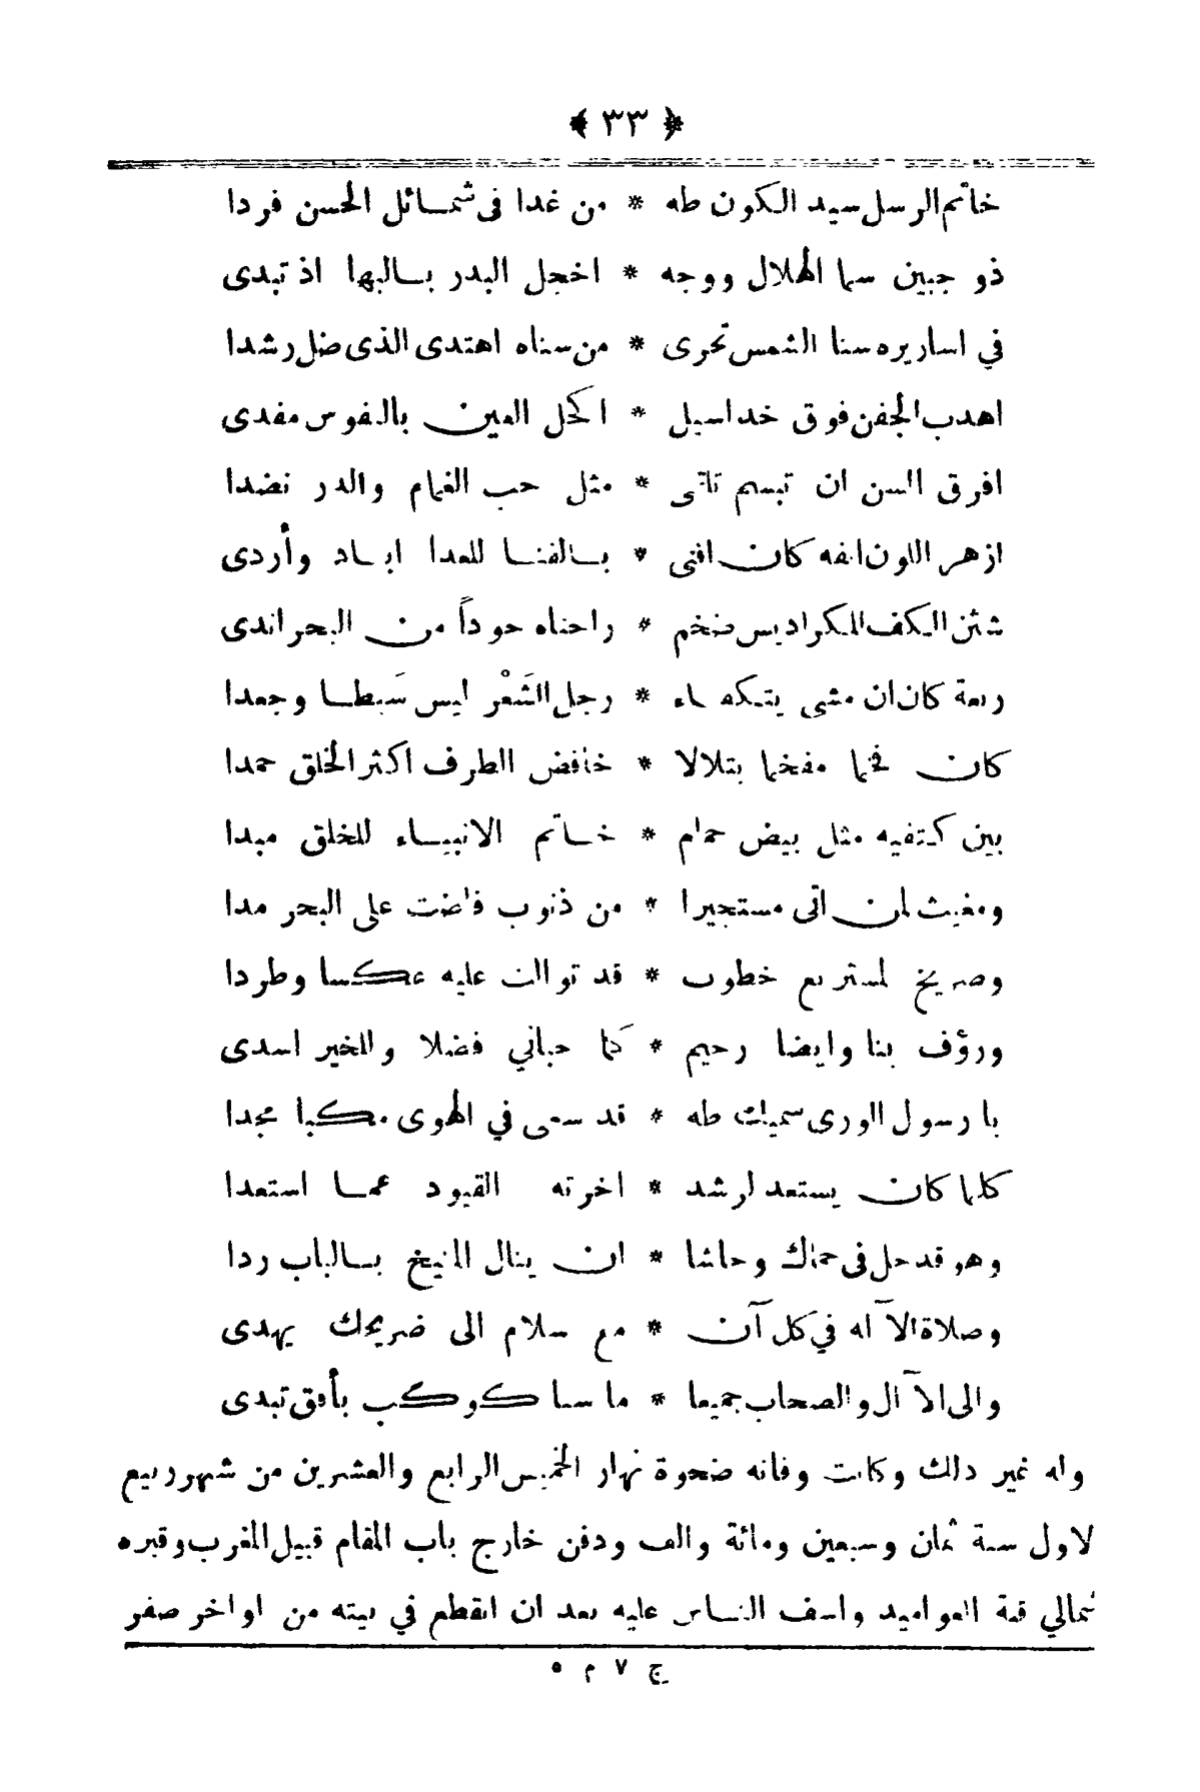 ﴿ ٣٣ ﴾
خاتم الرسل سيد الكون طه * من غدا فى شمائل الحسن فردا
ذو جبين سما الهلال ووجه * اخجل البدر بالبها اذ تبدى
في اساريره سنا الشمس تجرى * من سناه اهتدى الذى ضل رشدا
اهدب الجفن فوق خد اسيل * اكحل العين بالنفوس مفدى
افرق السن ان تبسم تاتى * مثل حب الغمام والدر نضدا
ازهر اللون انفه كان اقنى * بالفنا للعدا اباد وأردى
شثن الكف الكراديس ضخم * راحتاه جوداً من البحر اندى
ربعة كان ان مشى يتكفاء * رجل الشَعْر ليس سَبطا وجعدا
كان فخما مفخما يتلالا * خافض الطرف اكثر الخلق حمدا
بين كتفيه مثل بيض حمام * خاتم الانبياء للخلق مبدا
ومغيث لمن اتى مستجيرا * من ذنوب فاضت على البحر مدا
وصريخ لمستريع خطوب * قد توالت عليه عكسا وطردا
ورؤف بنا وايضا رحيم * كما حباني فضلا وللخير اسدى
يا رسول الورى سميك طه * قد سعى في الهوى مكبا مجدا
كلما كان يستعد لرشد * اخرته القيود عما استعدا
وهو قد حل فى حماك وحاشا * ان ينال المنيخ بالباب ردا
وصلاة الآله في كل آن * مع سلام الى ضريحك يهدى
والى الآل والصحاب جميعا * ما سما كوكب بأفق تبدى
وله غير ذلك وكانت وفاته ضحوة نهار الخميس الرابع والعشرين من شهر ربيع
لاول سنة ثمان وسبعين ومائة والف ودفن خارج باب المقام قبيل المغرب وقبره
شمالي قبة العواميد واسف الناس عليه بعد ان انقطع في بيته من اواخر صفر
ج ٧ م ٥